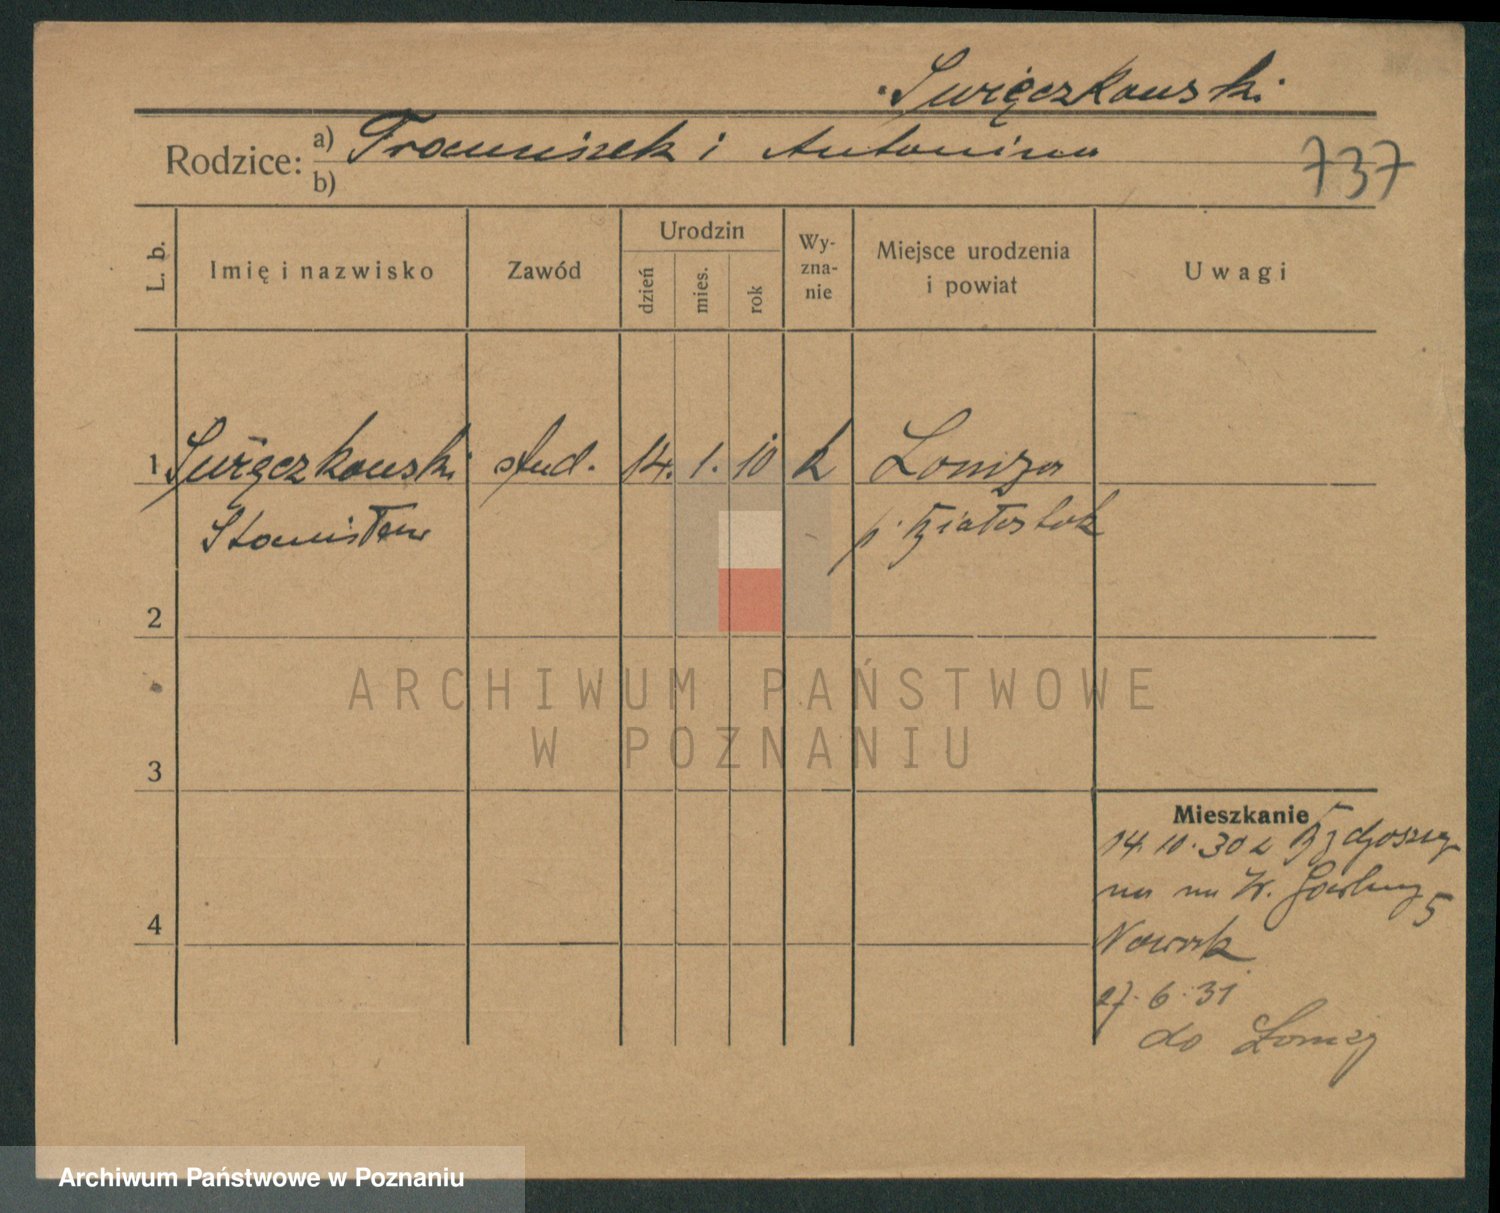 Święczkowski
Rodzice: a) Franciszek i Antonina
b)
737
L. b.
Imię i nazwisko
Zawód
Urodzin
dzień
mies.
rok
Wy-
zna-
nie
Miejsce urodzenia
i powiat
Uwagi
1 Święczkowski stud. 14. 1. 10 k Łomża
Stanisław p. Białostok
2
ARCHIWUM PAŃSTWOWE
W POZNANIU
3
Mieszkanie
14.10.30 z Bydgoszczy
na W. Garbary 5
4
Nowak
27.6.31
do Łomży
Archiwum Państwowe w Poznaniu